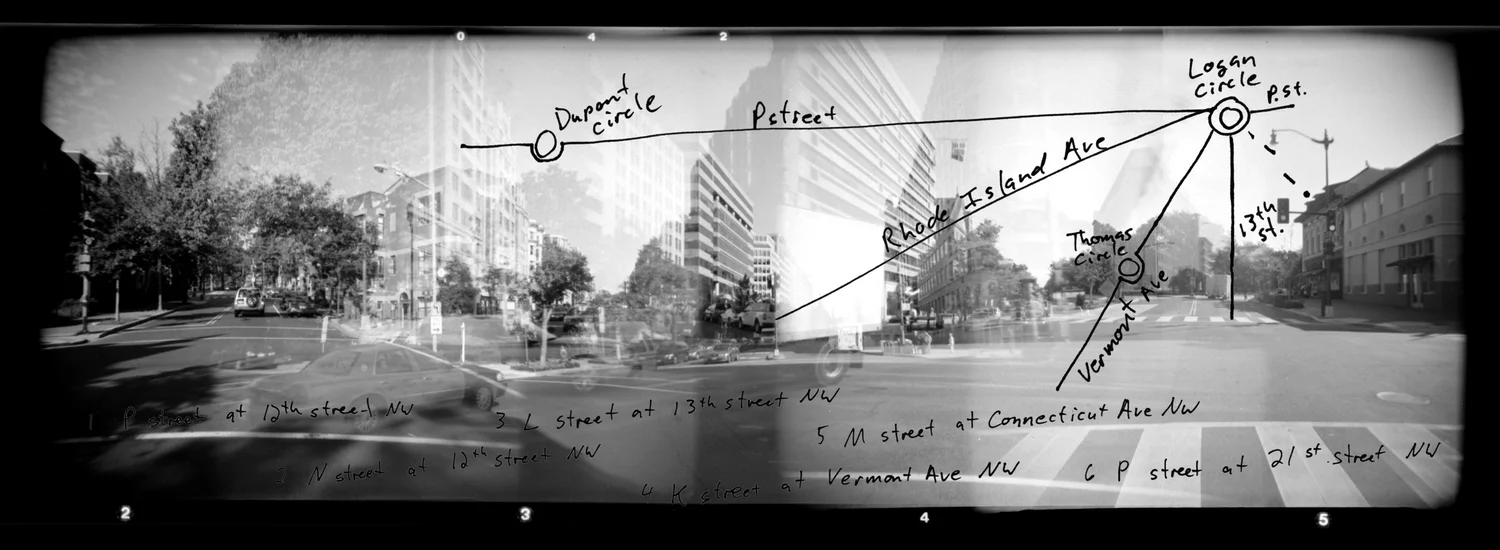 0 4 2
Logan
Circle
P.st.
Dupont
circle
P street
Rhode Island Ave
13th
st.
Thomas
Circle
Vermont Ave
1 P street at 12th street NW
3 L street at 13th street NW
5 M street at Connecticut Ave NW
2 N street at 12th street NW
4 K street at Vermont Ave NW
6 P street at 21st. street NW
2 3 4 5